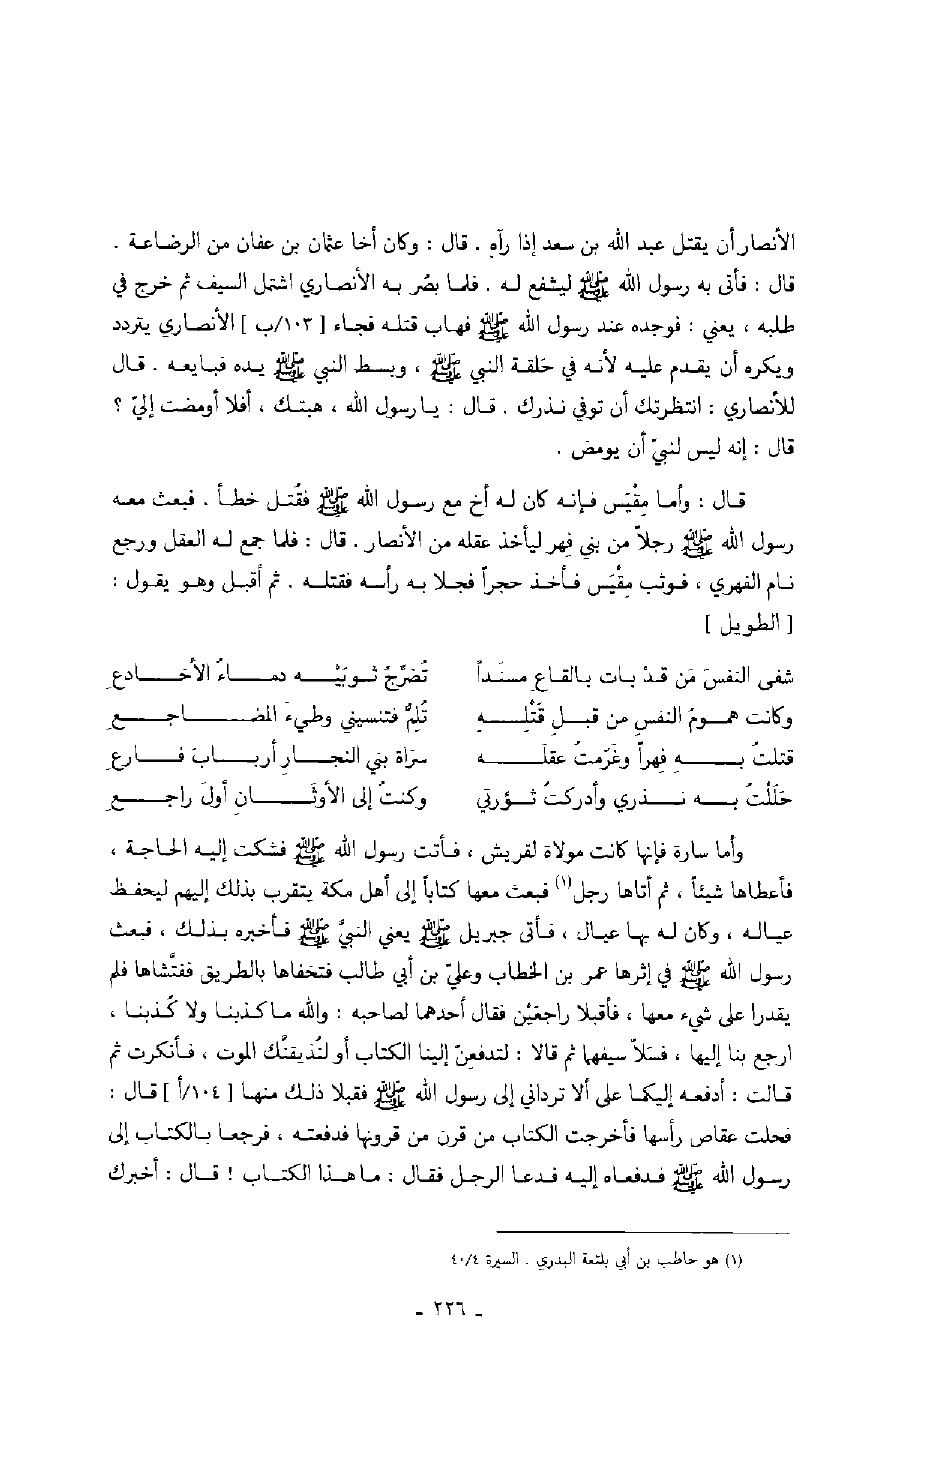 الأنصار أن يقتل عبد الله بن سعد إذا رآه . قال : وكان أخا عثمان بن عفان من الرضاعة .
قال : فأتى به رسول الله ﷺ ليشفع له . فلما بصُر به الأنصاري اشتمل السيف ثم خرج في
طلبه ، يعني : فوجده عند رسول الله ﷺ فهاب قتله فجاء [ ١٠٣/ب ] الأنصاري يتردد
ويكره أن يقدم عليه لأنه في حَلقة النبي ﷺ ، وبسط النبي ﷺ يده فبايعه . قال
للأنصاري : انتظرتك أن توفي نذرك . قال : يا رسول الله ، هبتك ، أفلا أومضت إليّ ؟
قال : إنه ليس لنبيّ أن يومض .
قال : وأما مِقْيَس فإنه كان له أخ مع رسول الله ﷺ فقُتل خطأ . فبعث معه
رسول الله ﷺ رجلاً من بني فِهر ليأخذ عقله من الأنصار . قال : فلما جمع له العقل ورجع
نام الفهري ، فوثب مِقْيَس فأخذ حجراً فجلا به رأسه فقتله . ثم أقبل وهو يقول :
[ الطويل ]
شفى النفسَ مَن قدْ بات بالقاعِ مسنَداً تُضرِّجُ ثوبَيْه دماءُ الأخادعِ
وكانت همومُ النفسِ من قبلِ قَتْلِهِ تُلِمُّ فتنسيني وطيءَ المضاجعِ
قتلتُ بهِ فِهراً وغَرّمتُ عقلَه سَراة بني النجارِ أربابَ فارعِ
حَلَلْتُ به نذري وأدركتُ ثؤرتي وكنتُ إلى الأوثانِ أولَ راجعِ
وأما سارة فإنها كانت مولاة لقريش ، فأتت رسول الله ﷺ فشكت إليه الحاجة ،
فأعطاها شيئاً ، ثم أتاها رجل(١) فبعث معها كتاباً إلى أهل مكة يتقرب بذلك إليهم ليحفظ
عياله ، وكان له بها عيال ، فأتى جبريل ﷺ يعني النبيَّ ﷺ فأخبره بذلك ، فبعث
رسول الله ﷺ في إثرها عمر بن الخطاب وعليّ بن أبي طالب فتخفاها بالطريق ففتَّشاها فلم
يقدرا على شيء معها ، فأقبلا راجعَيْن فقال أحدهما لصاحبه : والله ما كذبنا ولا كُذبنا ،
ارجع بنا إليها ، فسَلاّ سيفهما ثم قالا : لتدفعنّ إلينا الكتاب أو لنُذيقنَّك الموت ، فأنكرت ثم
قالت : أدفعه إليكما على ألا ترداني إلى رسول الله ﷺ فقبلا ذلك منها [ ١٠٤/أ ] قال :
فحلت عقاص رأسها فأخرجت الكتاب من قرن من قرونها فدفعته ، فرجعا بالكتاب إلى
رسول الله ﷺ فدفعاه إليه فدعا الرجل فقال : ما هذا الكتاب ! قال : أخبرك
(١) هو حاطب بن أبي بلتعة البدري . السيرة ٤٠/٤
ـ ٢٢٦ ـ